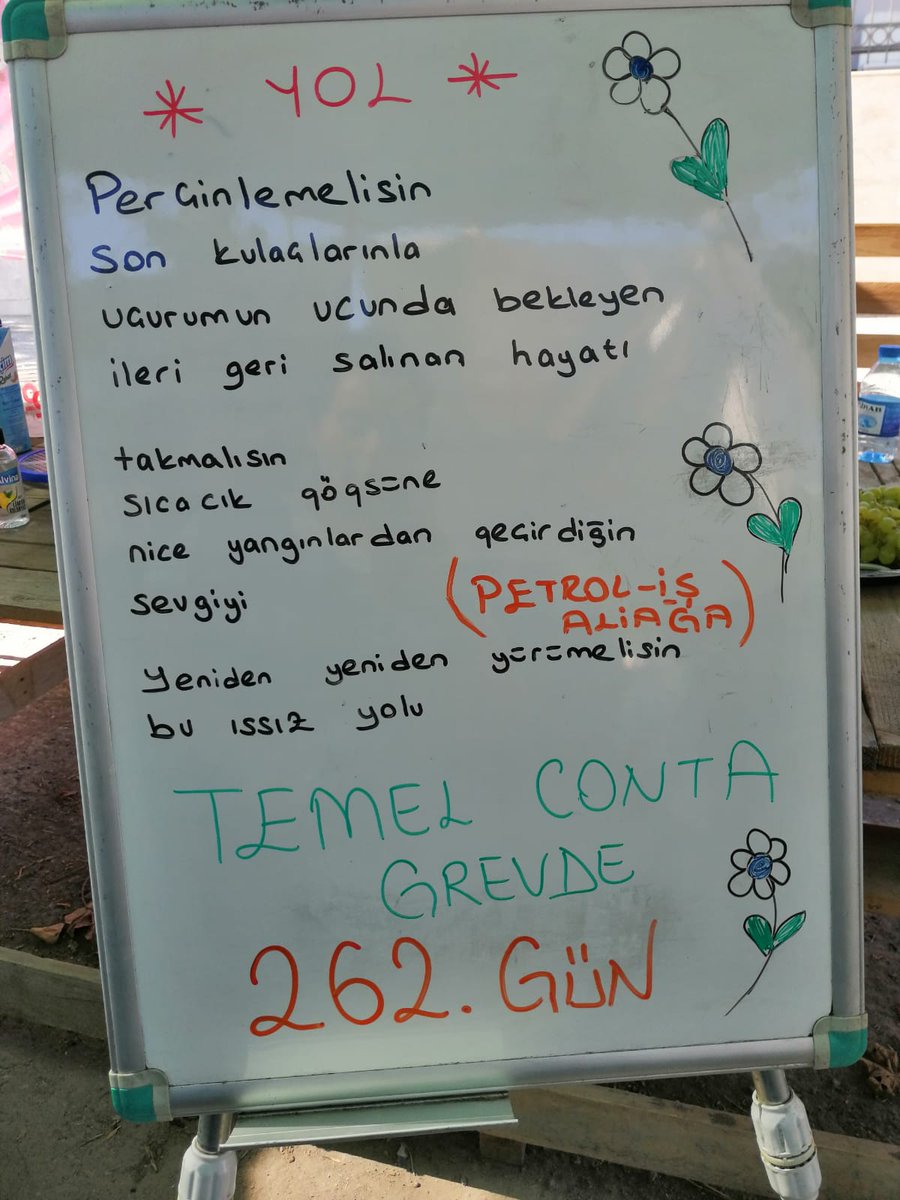 * YOL *
Perçinlemelisin
son kulaçlarınla
uçurumun ucunda bekleyen
ileri geri salınan hayatı
takmalısın
sıcacık göğsüne
nice yangınlardan geçirdiğin
sevgiyi
(PETROL-İŞ
ALİAĞA)
Yeniden yeniden yürümelisin
bu ıssız yolu
TEMEL CONTA
GREVDE
262. GÜN